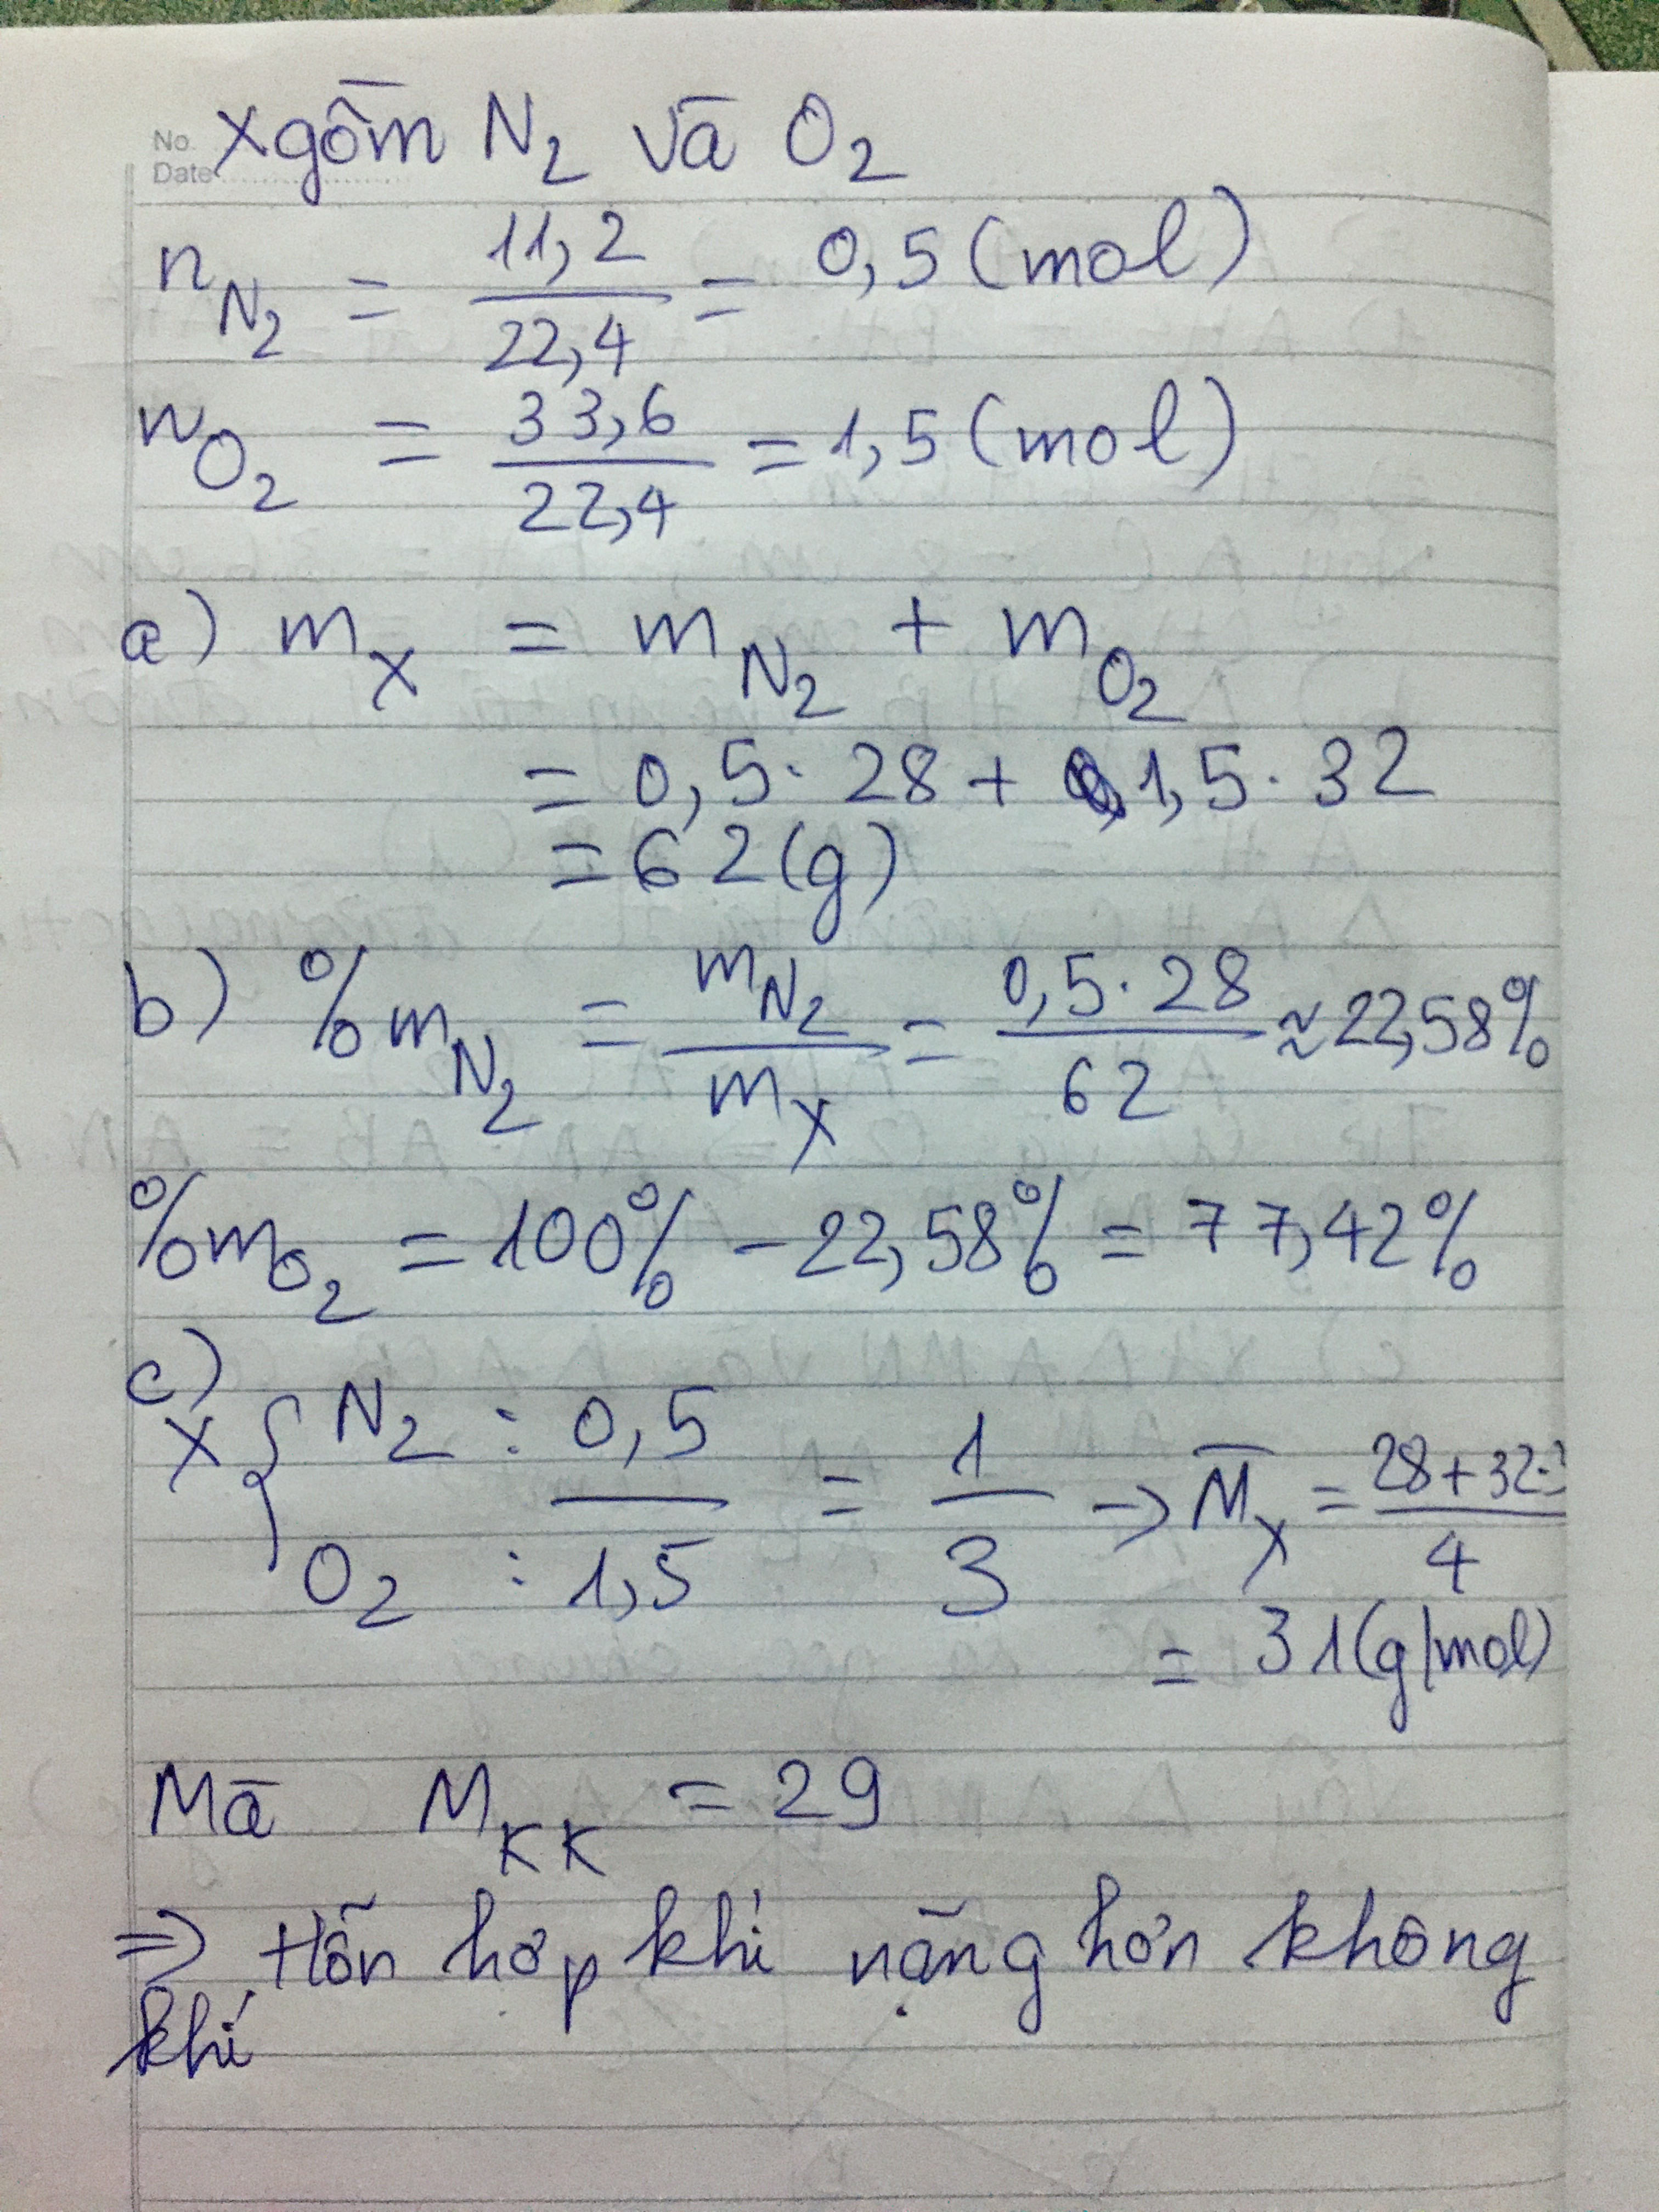 No.
Date
X gồm N₂ và O₂
n_N₂ = 11,2/22,4 = 0,5 (mol)
n_O₂ = 33,6/22,4 = 1,5 (mol)
a) m_X = m_N₂ + m_O₂
= 0,5 · 28 + 1,5 · 32
= 62 (g)
b) %m_N₂ = m_N₂/m_X = 0,5 · 28/62 ≈ 22,58%
%m_O₂ = 100% - 22,58% = 77,42%
c)
X { N₂ : 0,5 / O₂ : 1,5 = 1/3 → M̅_X = 28 + 32 ·/4
= 31 (g/mol)
Mà M_KK = 29
=> Hỗn hợp khí nặng hơn không
khí